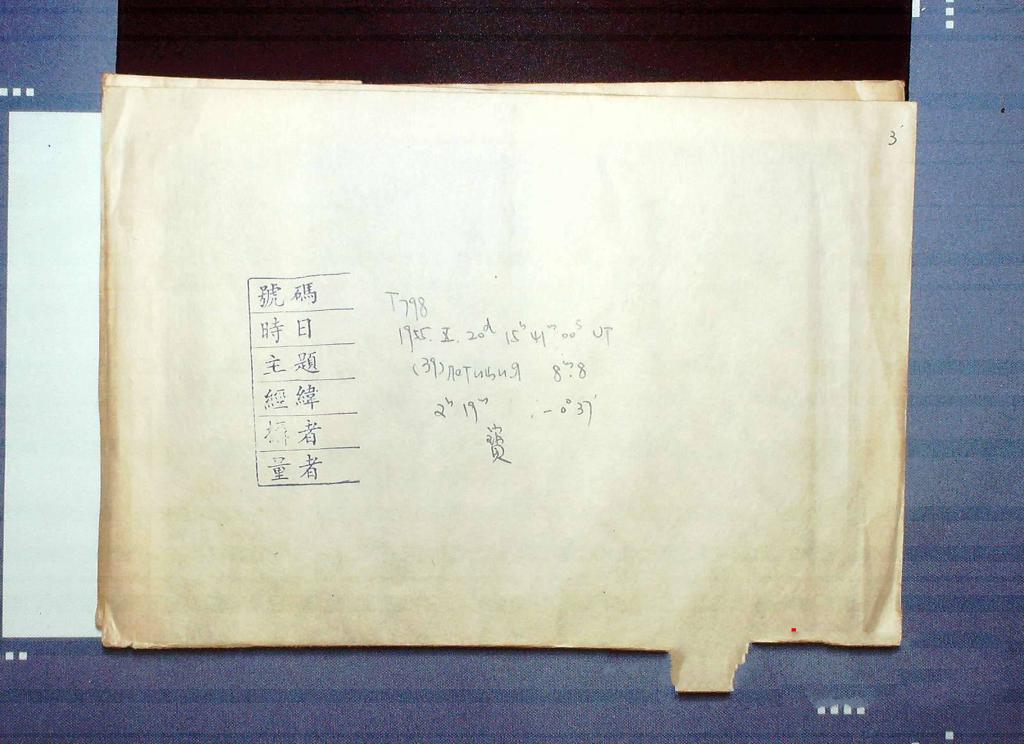 3
號碼 T798
時日 1955. X. 20ᵈ 15ʰ 41ᵐ 00ˢ UT
主題 (39) Лотиция 8ᵐ.8
經緯 2ʰ 19ᵐ -0°37′
攝者 寶
量者